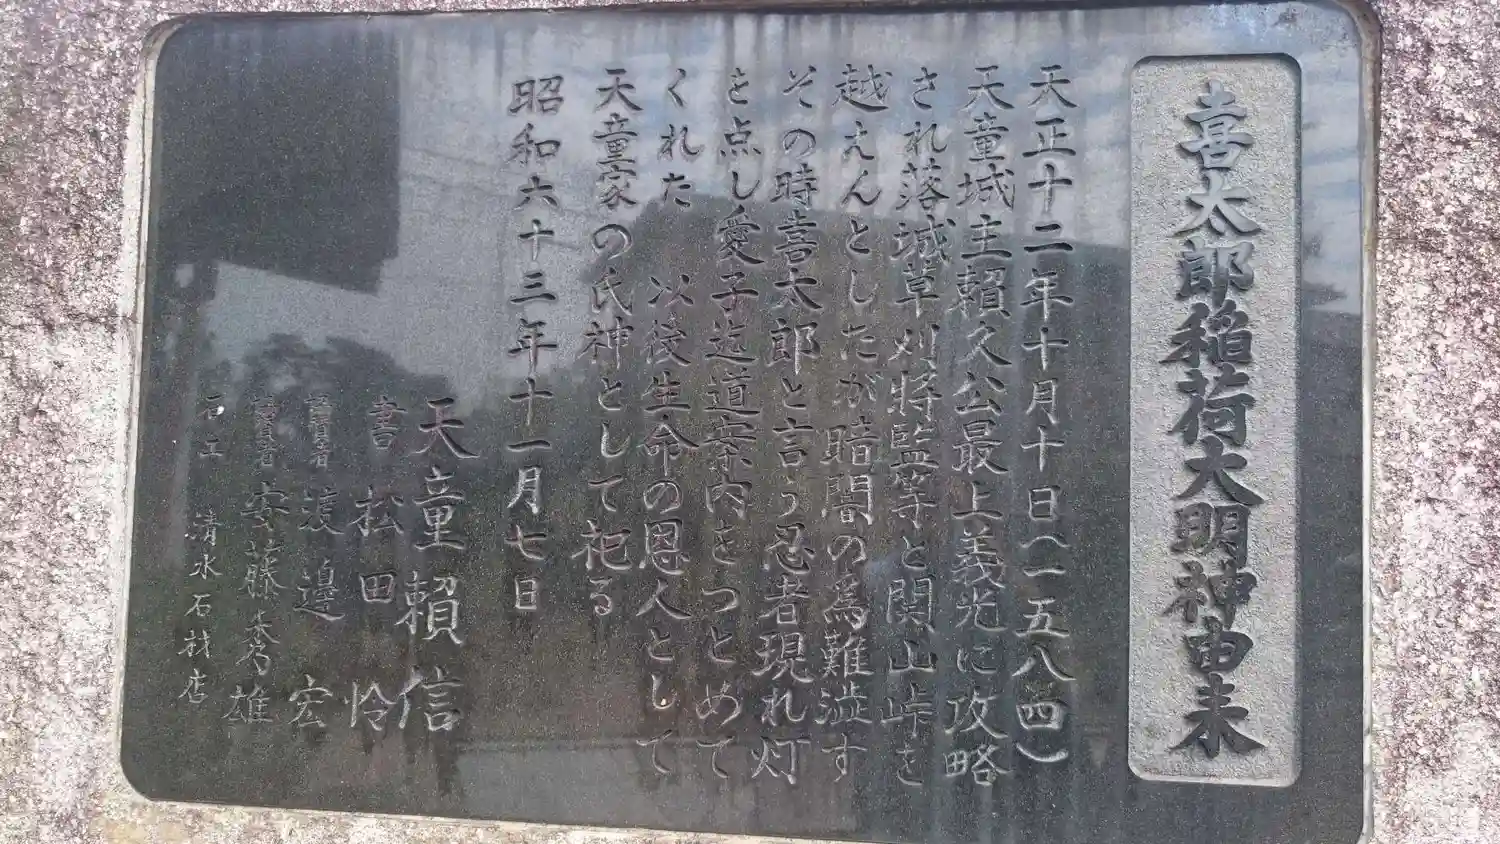 喜太郎稲荷大明神由来
天正十二年十月十日(一五八四)
天童城主頼久公最上義光に攻略
され落城草刈将監等と関山峠を
越えんとしたが暗闇の為難渋す
その時喜太郎と言う忍者現れ灯
を点し愛子迄道案内をつとめて
くれた 以後生命の恩人として
天童家の氏神として祀る
昭和六十三年十一月七日
天童頼信
書 松田怜
渡邉宏
安藤秀雄
石工 清水石材店